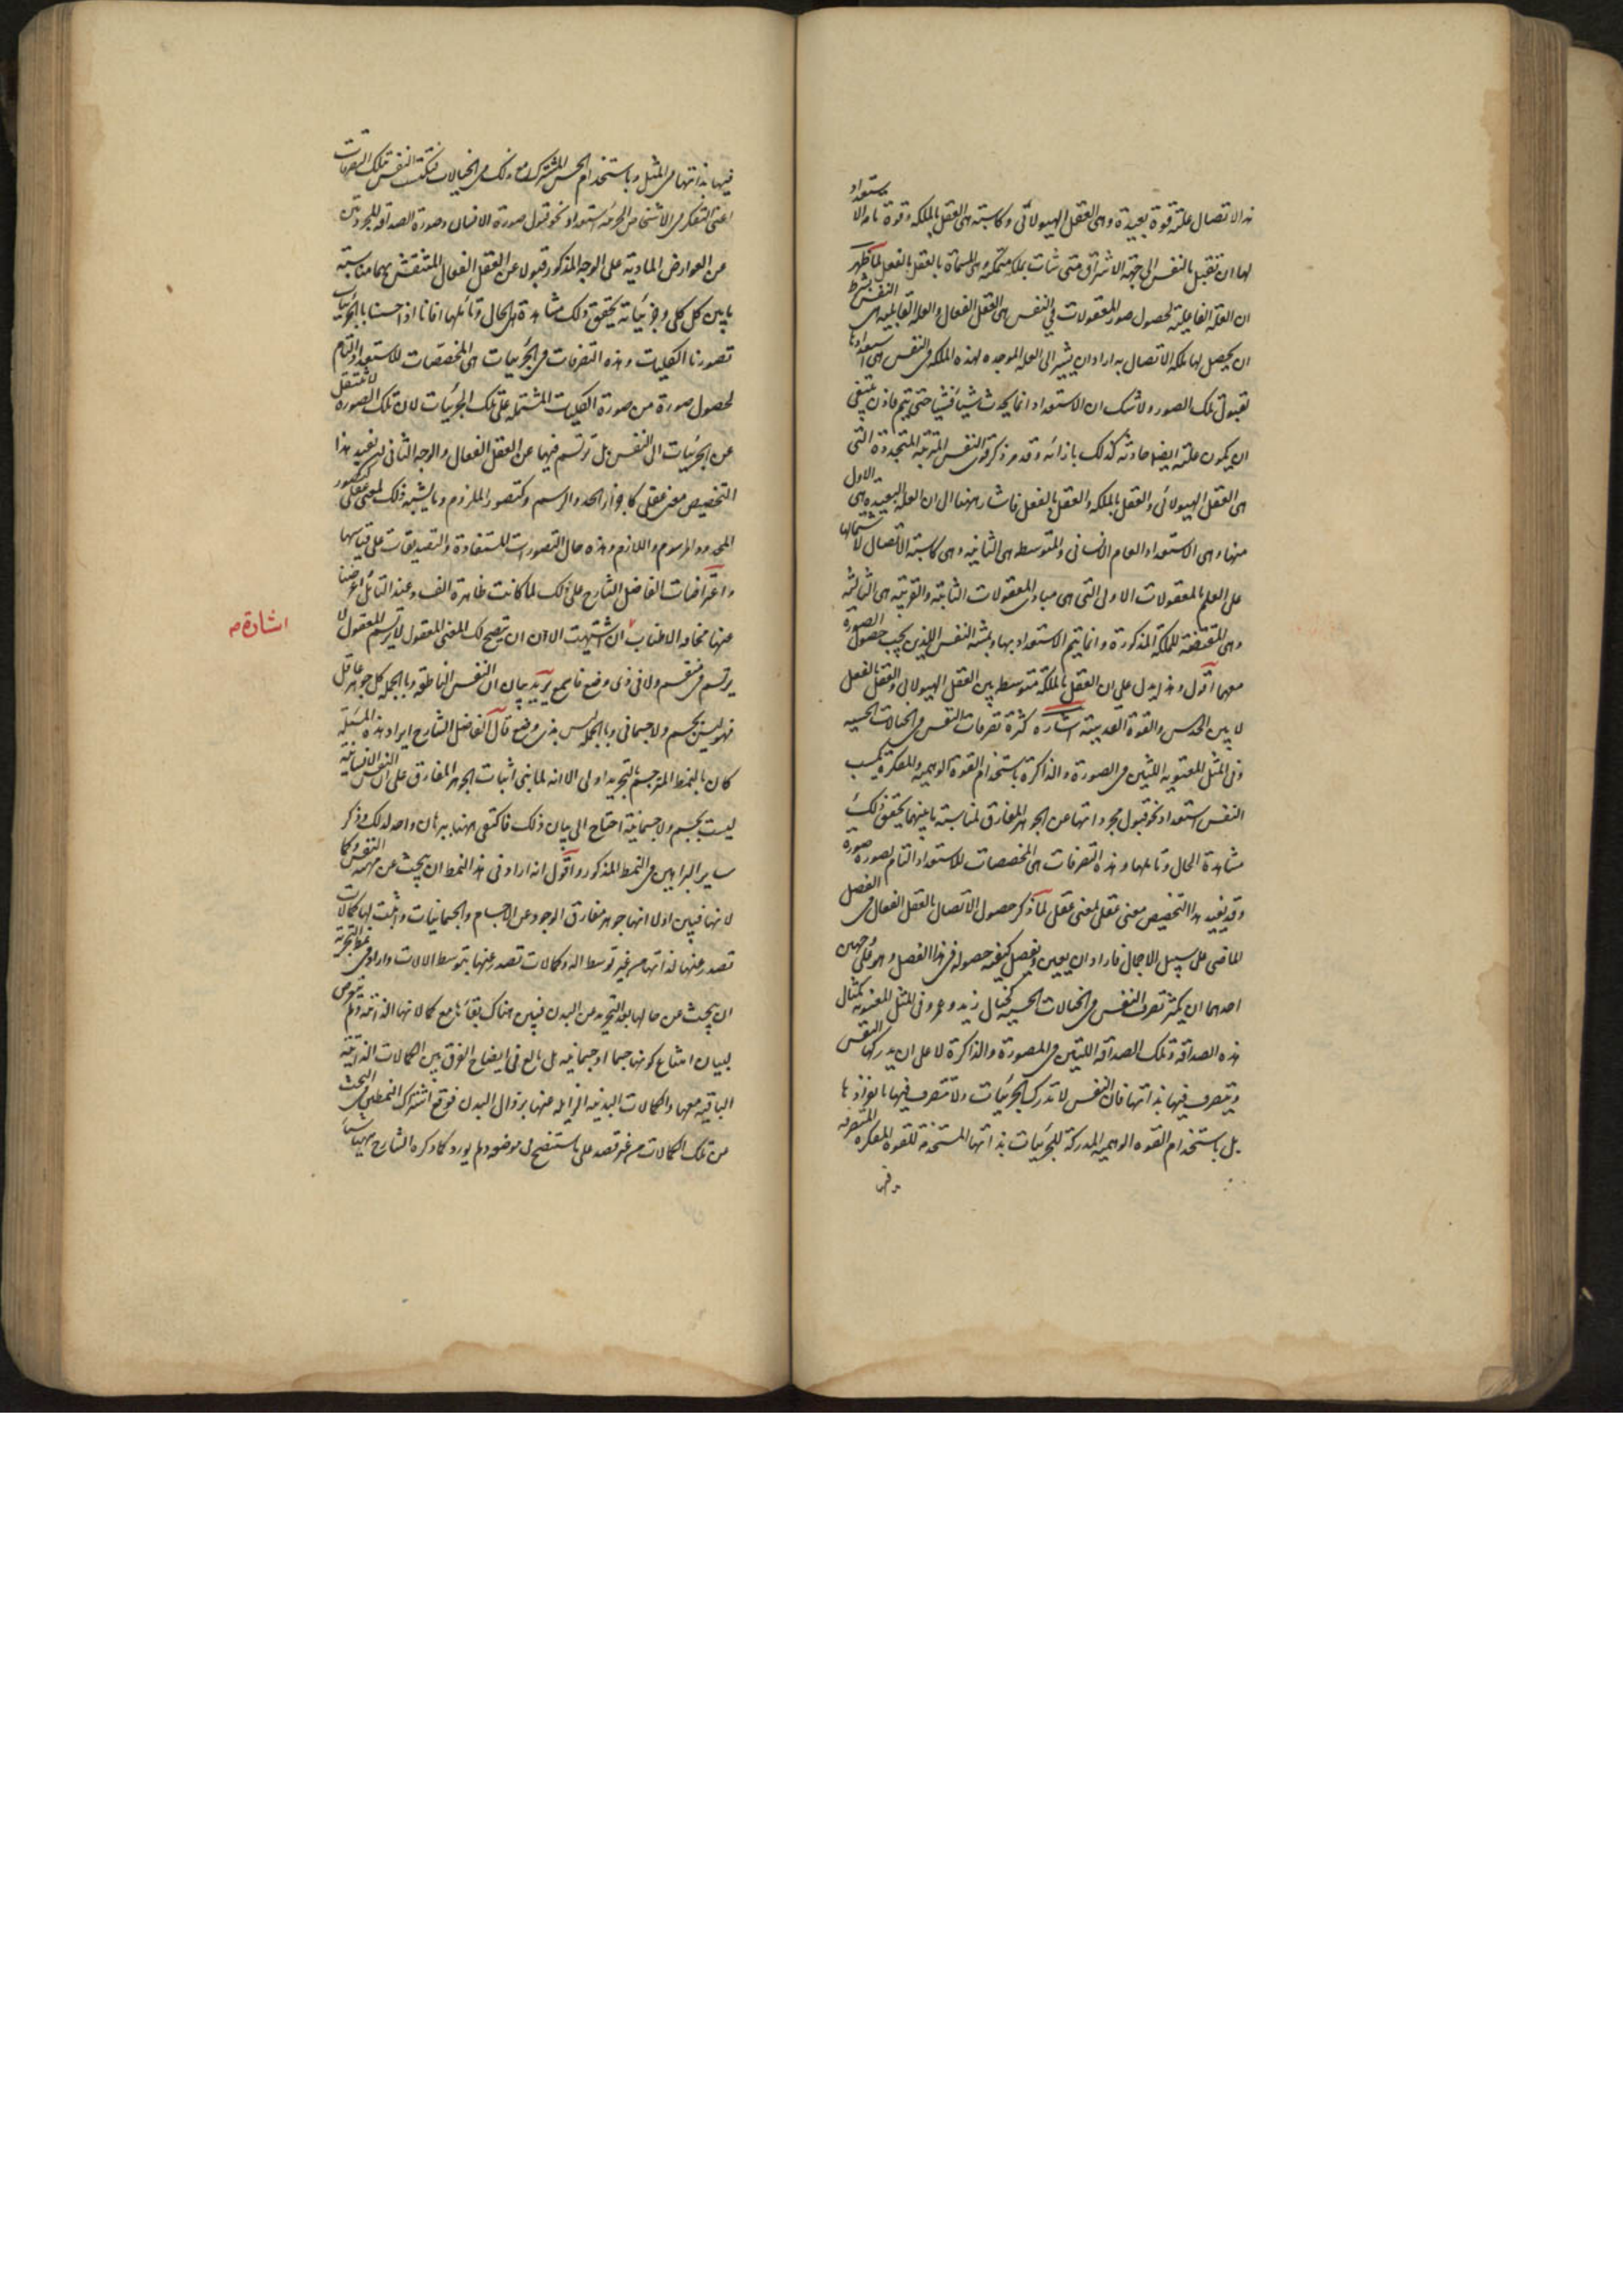 هذا الاتصال علته قوة بعيدة وهى العقل الهيولانى وكاسبة هى العقل بالملكه وقوة تامه الاستعداد
لها ان تقبل بالنفس الى جهة الاشراق متى شات بملكه متمكنه وهى المسماة بالعقل بالفعل لما ظهر
ان العلة الفاعلية لحصول صور المعقولات فى النفس هى العقل الفعال والعله القابليه هى النفس بشرط
ان يحصل لها ملكه الاتصال به اراد ان يشير الى العله الموجده لهذه الملكه فى النفس هى استعدادها
لقبول تلك الصور ولا شك ان الاستعداد انما يحدث شيئا فشيئا حتى يتم فاذن ينبغى
ان يكون علته ايضا حادثه كذلك بازائه وقد مر ذكر قوى النفس المترتبه المتجددة التى
هى العقل الهيولانى والعقل بالملكه والعقل بالفعل فاشار ههنا الى ان العله البعيده هى الاول
منها وهى الاستعداد العام الانسانى والمتوسطه هى الثانيه وهى كاسبة الاتصال لاشتمالها
على العلم بالمعقولات الاولى التى هى مبادى المعقولات الثانية والقريبة هى الثالثة
وهى المقتضية للملكه المذكورة وانما يتم الاستعداد بها وبمشية النفس اللذين يجب حصول الصورة
معهما اقول وهذا يدل على ان العقل بالملكة متوسط بين العقل الهيولانى والعقل بالفعل
لا بين الحدس والقوة القدسية اشارة كثرة تصرفات النفس فى الخيالات الحسيه
وفى المثل المعنويه اللتين فى المصورة والذاكرة باستخدام القوة الوهميه والمفكرة يكسب
النفس استعداد نحو قبول مجرداتها عن الجوهر المفارق لمناسبة ما بينهما يحقق ذلك
مشاهدة الحال وتاملها وهذه التصرفات هى المخصصات للاستعداد التام لصورة صورة
وقد يفيد هذا التخصيص معنى عقلى لمعنى عقلى لما ذكر حصول الاتصال بالعقل الفعال فى الفصل
الماضى على سبيل الاجمال فاراد ان يعين وتفصل كيفية حصوله فى هذا الفصل وهو على وجهين
احدهما ان يكثر تصرف النفس فى الخيالات الحسية كخيال زيد وعمرو وفى المثل المعنويه كمثال
هذه الصداقه وتلك الصداقه اللتين فى المصورة والذاكرة لا على ان يدركها النفس
ويتصرف فيها بذاتها فان النفس لا تدرك الجزئيات ولا تتصرف فيها بانفرادها
بل باستخدام القوه الوهميه المدركة للجزئيات بذاتها المستخدمة للقوه المفكره المتصرفه
فيها بذاتها فى المثل وباستخدام الحس المشترك مع ذلك فى الخيالات فتكتسب النفس بتلك التصرفات
اعنى التفكر فى الاشخاص الجزئية استعداد نحو قبول صورة الانسان وصورة الصداقه المجردتين
عن العوارض المادية على الوجه المذكور قبولا عن العقل الفعال المنتقش بهما لمناسبة
ما بين كل كلى وجزئياته يحقق ذلك مشاهدة الحال وتاملها فانا اذا احسسنا بالجزئيات
تصورنا الكليات وهذه التصرفات فى الجزئيات هى المخصصات للاستعداد التام
لحصول صورة من صورة الكليات المشتمله على تلك الجزئيات لان تلك الصورة لا تنتقل
عن الجزئيات الى النفس بل ترتسم فيها عن العقل الفعال والوجه الثانى ان يفيد هذا
التخصيص معنى عقلى كاجزاء الحد والرسم وكتصور الملزوم وما يشبه ذلك لمعنى عقلى كتصور
المحدود والمرسوم واللازم وهذه حال التصورات المستفادة والتصديقات على قياسها
واعتراضات الفاضل الشارح على ذلك لما كانت ظاهرة الفساد عند التامل اعرضنا
عنها مخافة الاطناب ان اشتهيت الان ان يتضح لك المعنى المعقول لا يرتسم المعقول لا
اشارة
يرتسم فى منقسم ولا فى ذى وضع فاسمع يريد بيان ان النفس الناطقه وبالجملة كل جوهر عاقل
فهو ليس بجسم ولا جسمانى وبالجملة ليس بذى وضع قال الفاضل الشارح ايراد هذه المسئلة
كان بالنمط المترجم بالتجريد اولى الا انه لما بنى اثبات الجوهر المفارق على ان النفس الانسانية
ليست بجسم ولا جسمانية احتاج الى بيان ذلك فاكتفى ههنا ببرهان واحد لذلك وذكر
ساير البراهين فى النمط المذكور واقول انه اراد فى هذا النمط ان يبحث عن مهية النفس وكما
لاتها فبين اولا انها جوهر مفارق الوجود عن الاجسام والجسمانيات واثبت لها كمالات
تصدر عنها لذاتها من غير توسط الة وكمالات تصدر عنها بتوسط الالات واراد فى نمط التجريد
ان يبحث عن حالها بعد التجريد من البدن فبين هناك بقائها مع كمالاتها الذاتية ولم يتعرض
لبيان امتناع كونها جسما او جسمانيه بل بالغ فى ايضاح الفرق بين الكمالات الذاتية
الباقيه معها والكمالات البدنيه الزايله عنها بزوال البدن فوقع اشتراك النمطين فى البحث
من تلك الكمالات من غير قصد على ما سنتضح فى موضعه ولم يورد كما ذكره الشارح ههنا شيئا